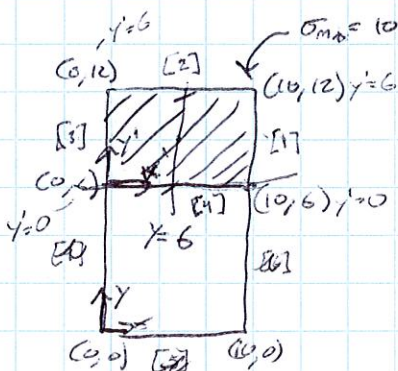 y'=6
σmax = 10
(0,12) [2] (10,12) y'=6
[3] y' [1]
(0,6) [4] (10,6) y'=0
y'=0 y=6
[6]
y
(0,0) [5] (10,0)